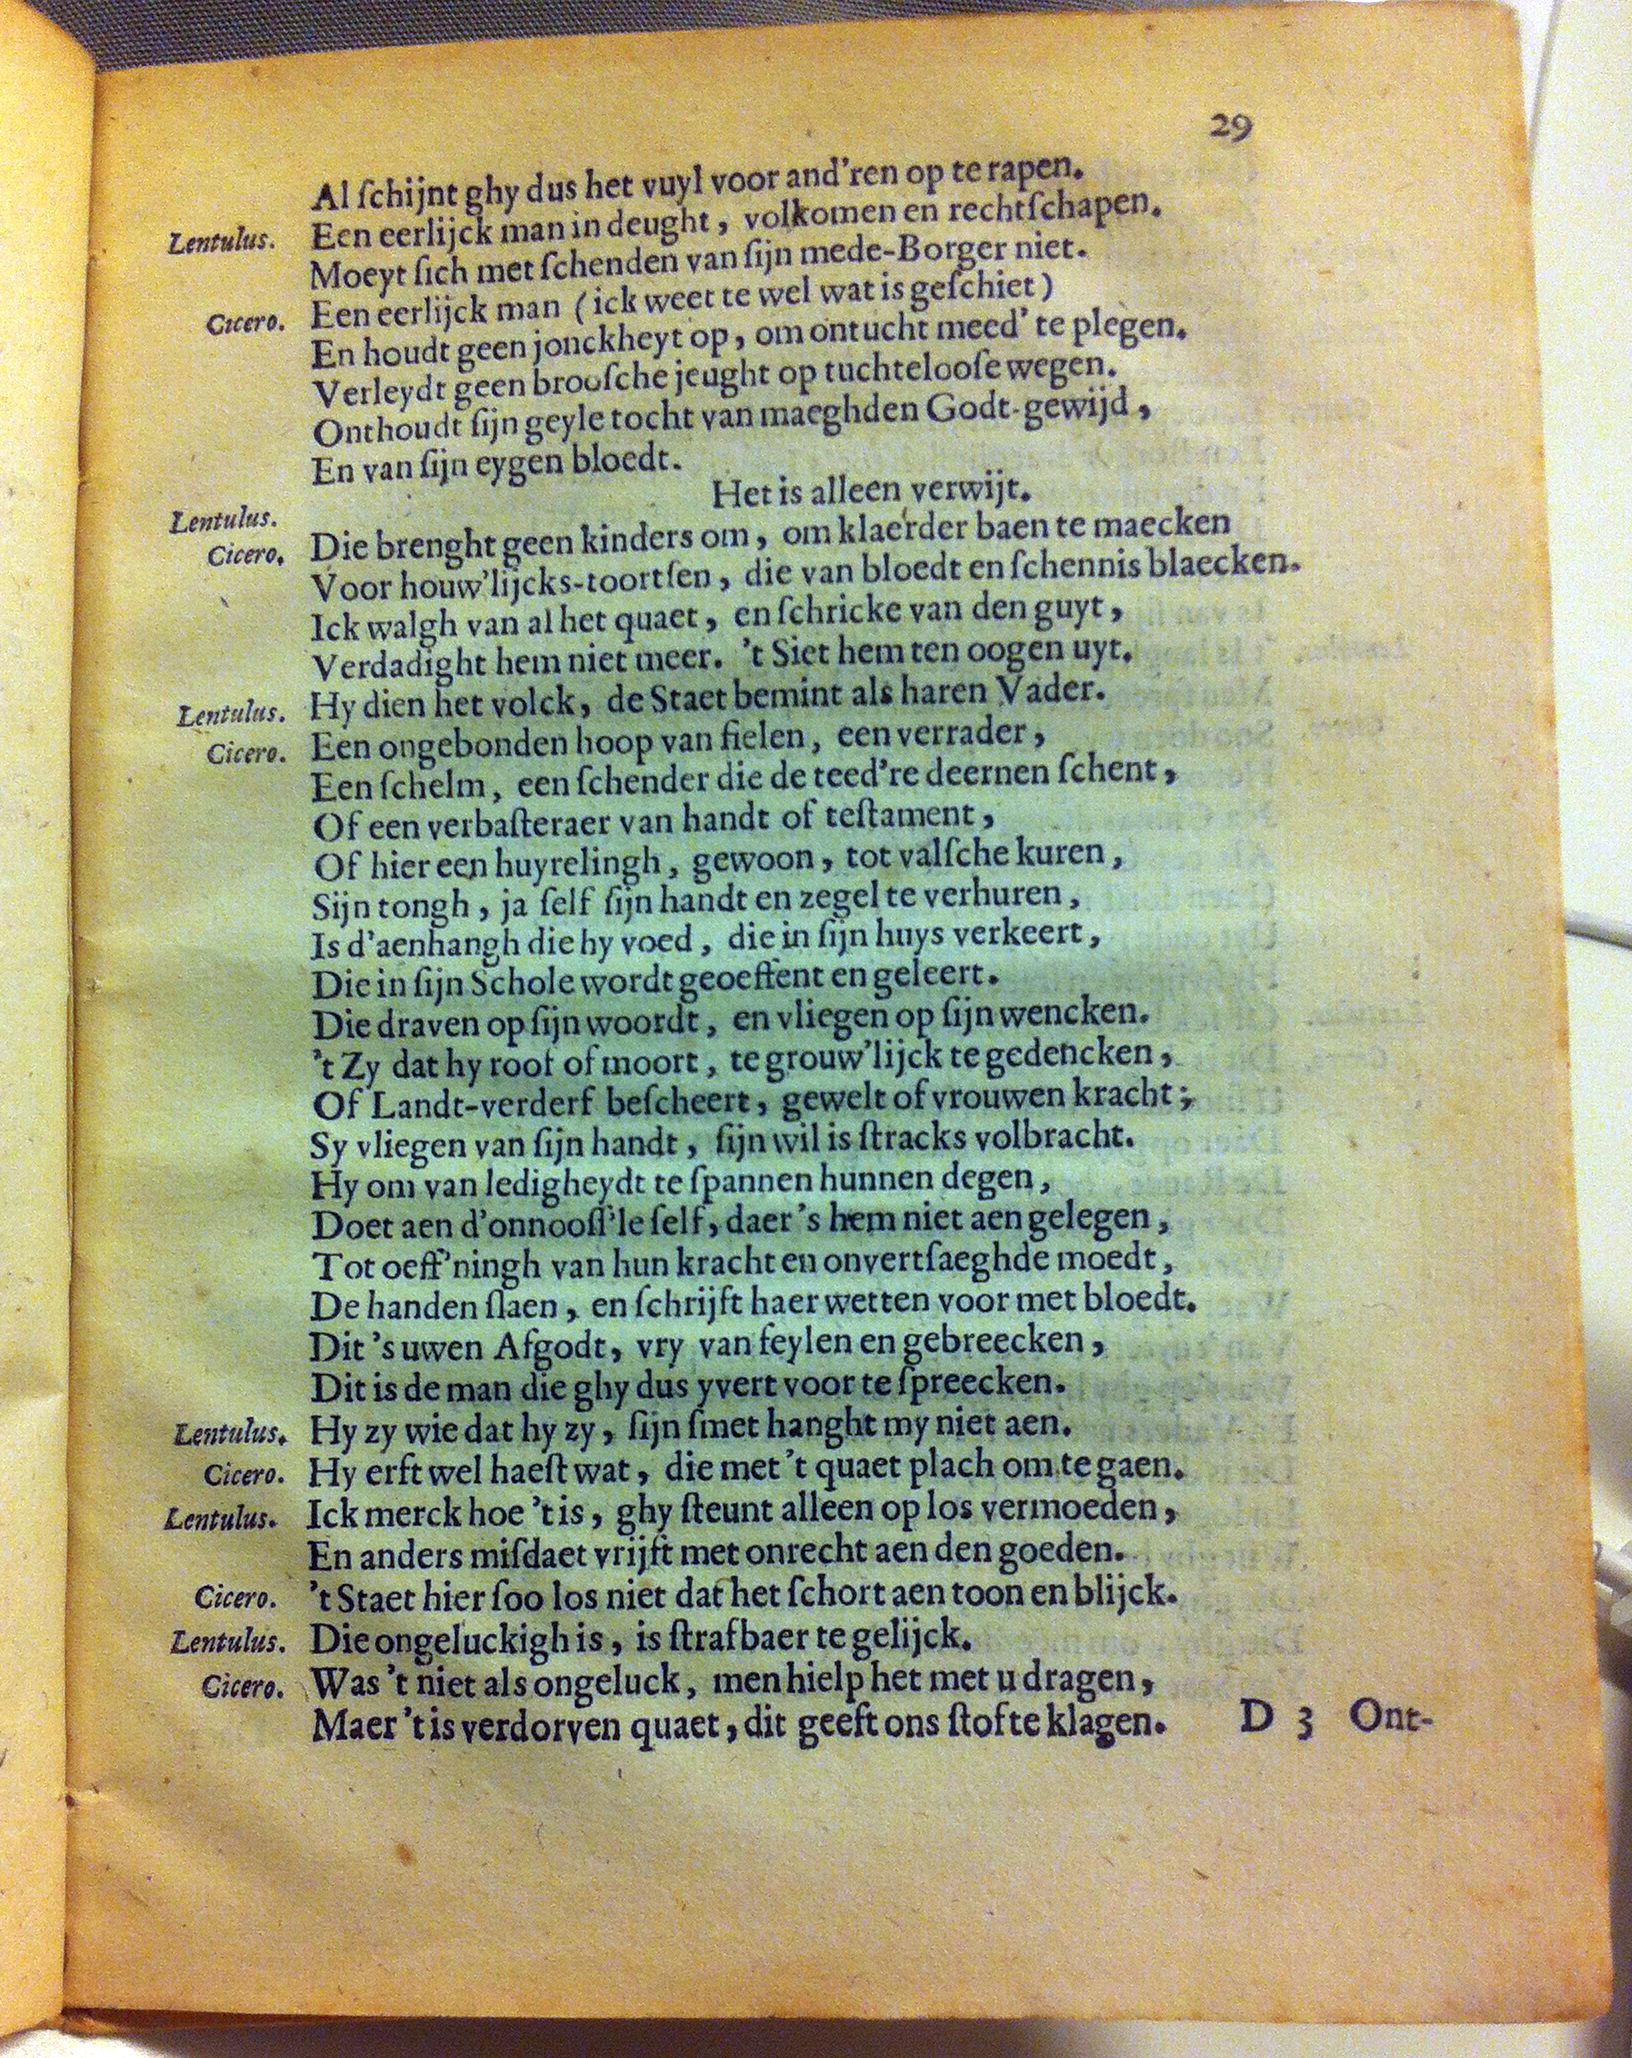 29
Al ſchijnt ghy dus het vuyl voor and'ren op te rapen.
Lentulus. Een eerlijck man in deught, volkomen en rechtſchapen.
Moeyt ſich met ſchenden van ſijn mede-Borger niet.
Cicero. Een eerlijck man (ick weet te wel wat is geſchiet)
En houdt geen jonckheyt op, om ontucht meed' te plegen.
Verleydt geen brooſche jeught op tuchtelooſe wegen.
Onthoudt ſijn geyle tocht van maeghden Godt-gewijd,
En van ſijn eygen bloedt.
Lentulus. Het is alleen verwijt.
Cicero. Die brenght geen kinders om, om klaerder baen te maecken
Voor houw'lijcks-toortſen, die van bloedt en ſchennis blaecken.
Ick walgh van al het quaet, en ſchricke van den guyt,
Verdadight hem niet meer. 't Siet hem ten oogen uyt.
Lentulus. Hy dien het volck, de Staet bemint als haren Vader.
Cicero. Een ongebonden hoop van fielen, een verrader,
Een ſchelm, een ſchender die de teed're deernen ſchent,
Of een verbaſteraer van handt of teſtament,
Of hier een huyrelingh, gewoon, tot valſche kuren,
Sijn tongh, ja ſelf ſijn handt en zegel te verhuren,
Is d'aenhangh die hy voed, die in ſijn huys verkeert,
Die in ſijn Schole wordt geoeffent en geleert.
Die draven op ſijn woordt, en vliegen op ſijn wencken.
't Zy dat hy roof of moort, te grouw'lijck te gedencken,
Of Landt-verderf beſcheert, gewelt of vrouwen kracht;
Sy vliegen van ſijn handt, ſijn wil is ſtracks volbracht.
Hy om van ledigheydt te ſpannen hunnen degen,
Doet aen d'onnooſſ'le ſelf, daer 's hem niet aen gelegen,
Tot oeff'ningh van hun kracht en onvertſaeghde moedt,
De handen ſlaen, en ſchrijft haer wetten voor met bloedt.
Dit 's uwen Afgodt, vry van feylen en gebreecken,
Dit is de man die ghy dus yvert voor te ſpreecken.
Lentulus. Hy zy wie dat hy zy, ſijn ſmet hanght my niet aen.
Cicero. Hy erft wel haeſt wat, die met 't quaet plach om te gaen.
Lentulus. Ick merck hoe 't is, ghy ſteunt alleen op los vermoeden,
En anders miſdaet vrijft met onrecht aen den goeden.
Cicero. 't Staet hier ſoo los niet dat het ſchort aen toon en blijck.
Lentulus. Die ongeluckigh is, is ſtrafbaer te gelijck.
Cicero. Was 't niet als ongeluck, men hielp het met u dragen,
Maer 't is verdorven quaet, dit geeft ons ſtof te klagen.
D 3 Ont-